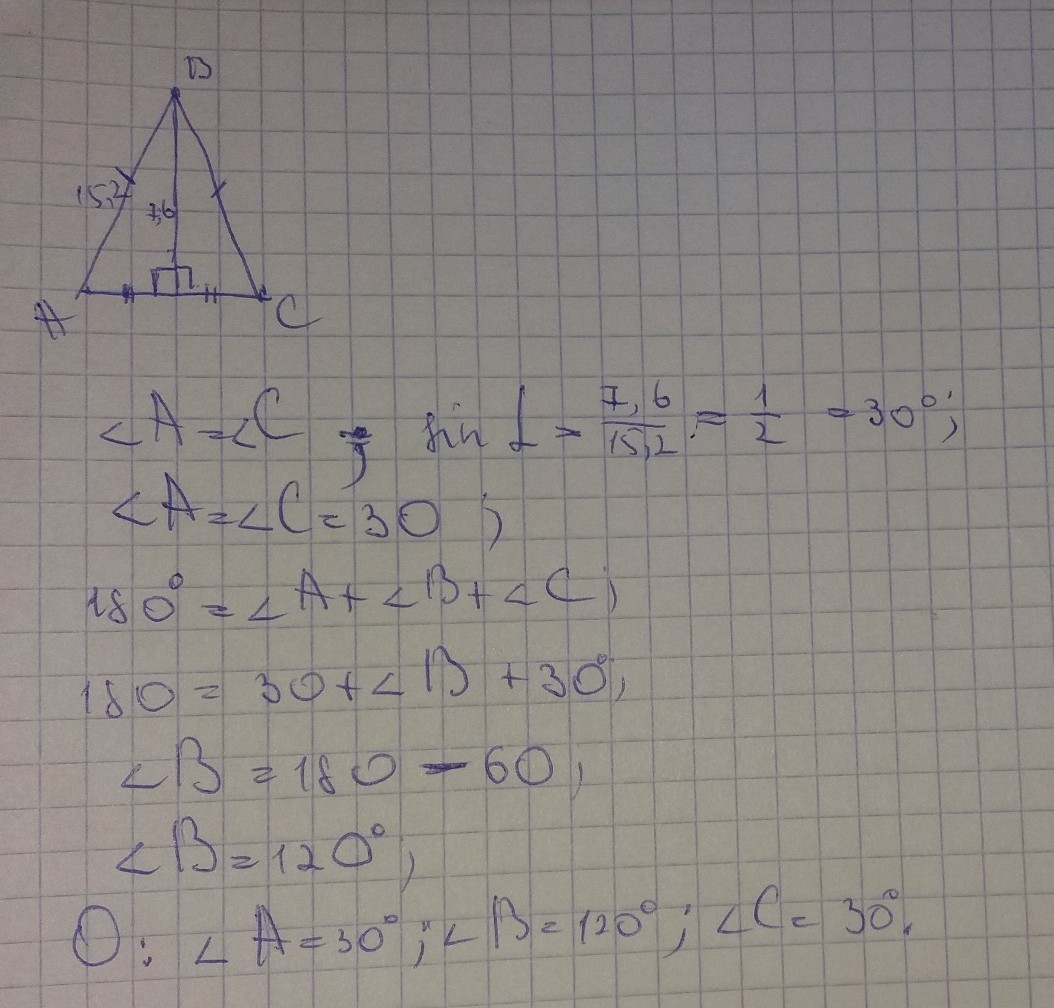 B
15,2
7,6
A C
∠A=∠C ; sin L = 7,6/15,2 = 1/2 = 30°;
∠A=∠C=30 ;
180° = ∠A+∠B+∠C;
180 = 30+∠B+30°;
∠B = 180 − 60;
∠B = 120°;
O: ∠A=30°; ∠B=120°; ∠C=30°.